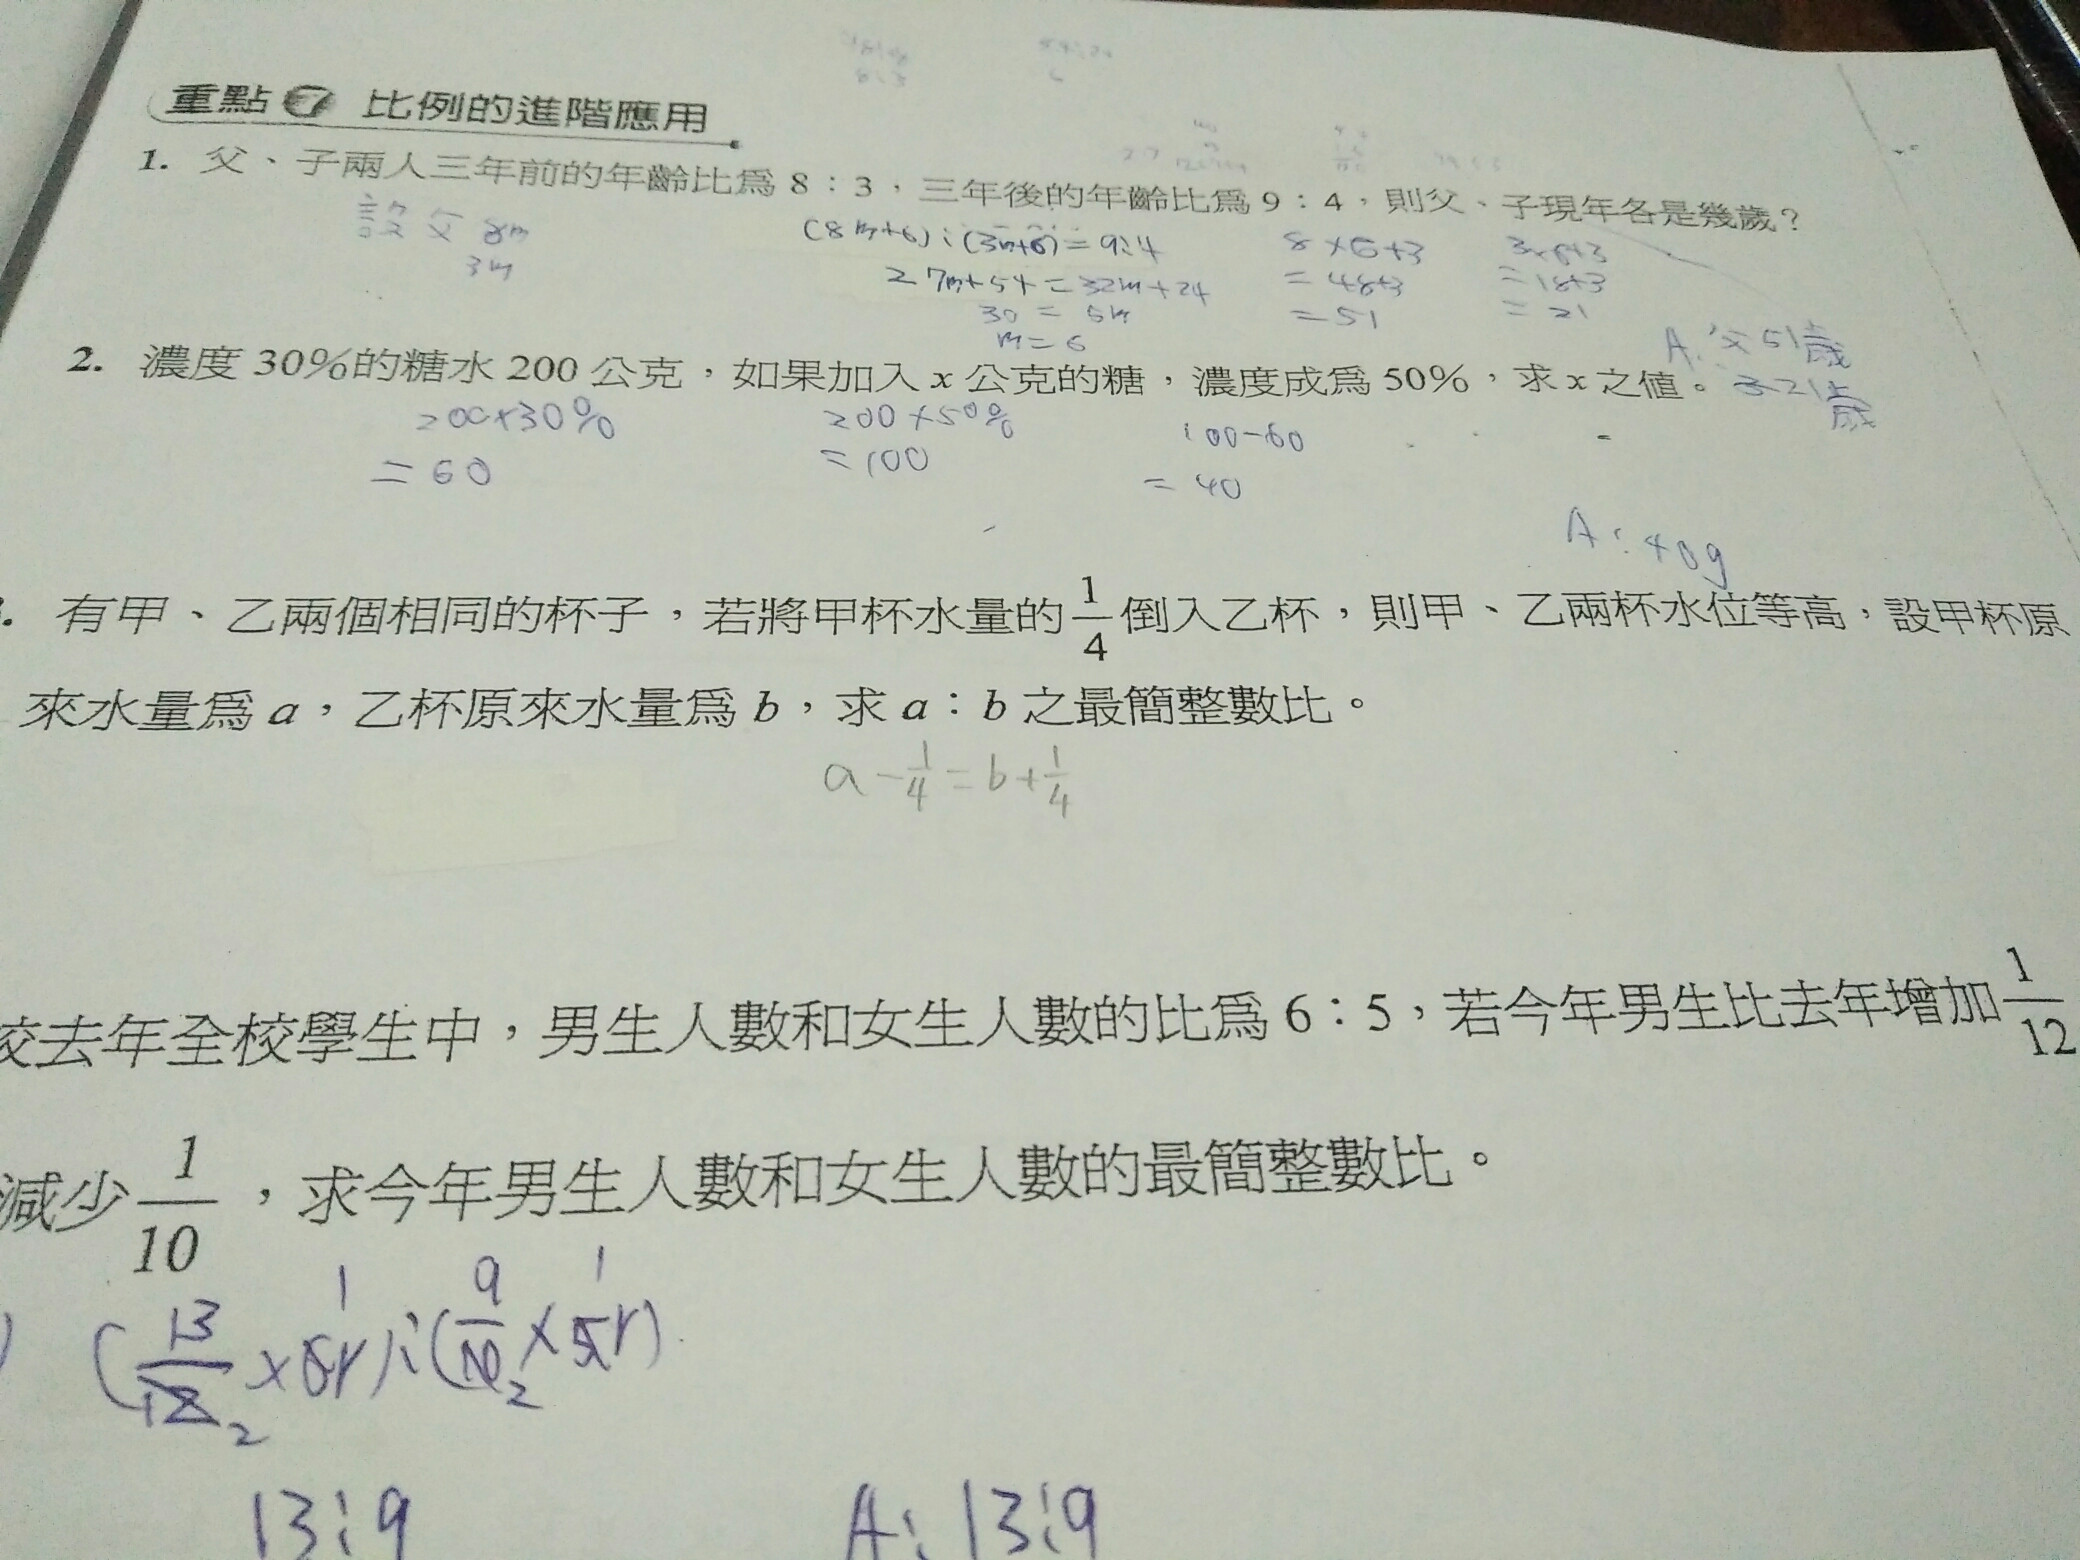 重點 7 比例的進階應用
1. 父、子兩人三年前的年齡比為 8：3，三年後的年齡比為 9：4，則父、子現年各是幾歲？
設父 8m
3m
(8m+6):(3m+6)=9:4
27m+54=32m+24
30=5m
m=6
8×6+3
=48+3
=51
3×6+3
=18+3
=21
A:父51歲
子21歲
2. 濃度 30%的糖水 200 公克，如果加入 x 公克的糖，濃度成為 50%，求 x 之值。
200×30%
=60
200×50%
=100
100-60
=40
A:40g
有甲、乙兩個相同的杯子，若將甲杯水量的 1/4 倒入乙杯，則甲、乙兩杯水位等高，設甲杯原
來水量為 a，乙杯原來水量為 b，求 a：b 之最簡整數比。
a-1/4=b+1/4
校去年全校學生中，男生人數和女生人數的比為 6：5，若今年男生比去年增加 1/12
減少 1/10，求今年男生人數和女生人數的最簡整數比。
(13/12 2×6r 1):(9/10 2×5r 1)
13:9
A:13:9